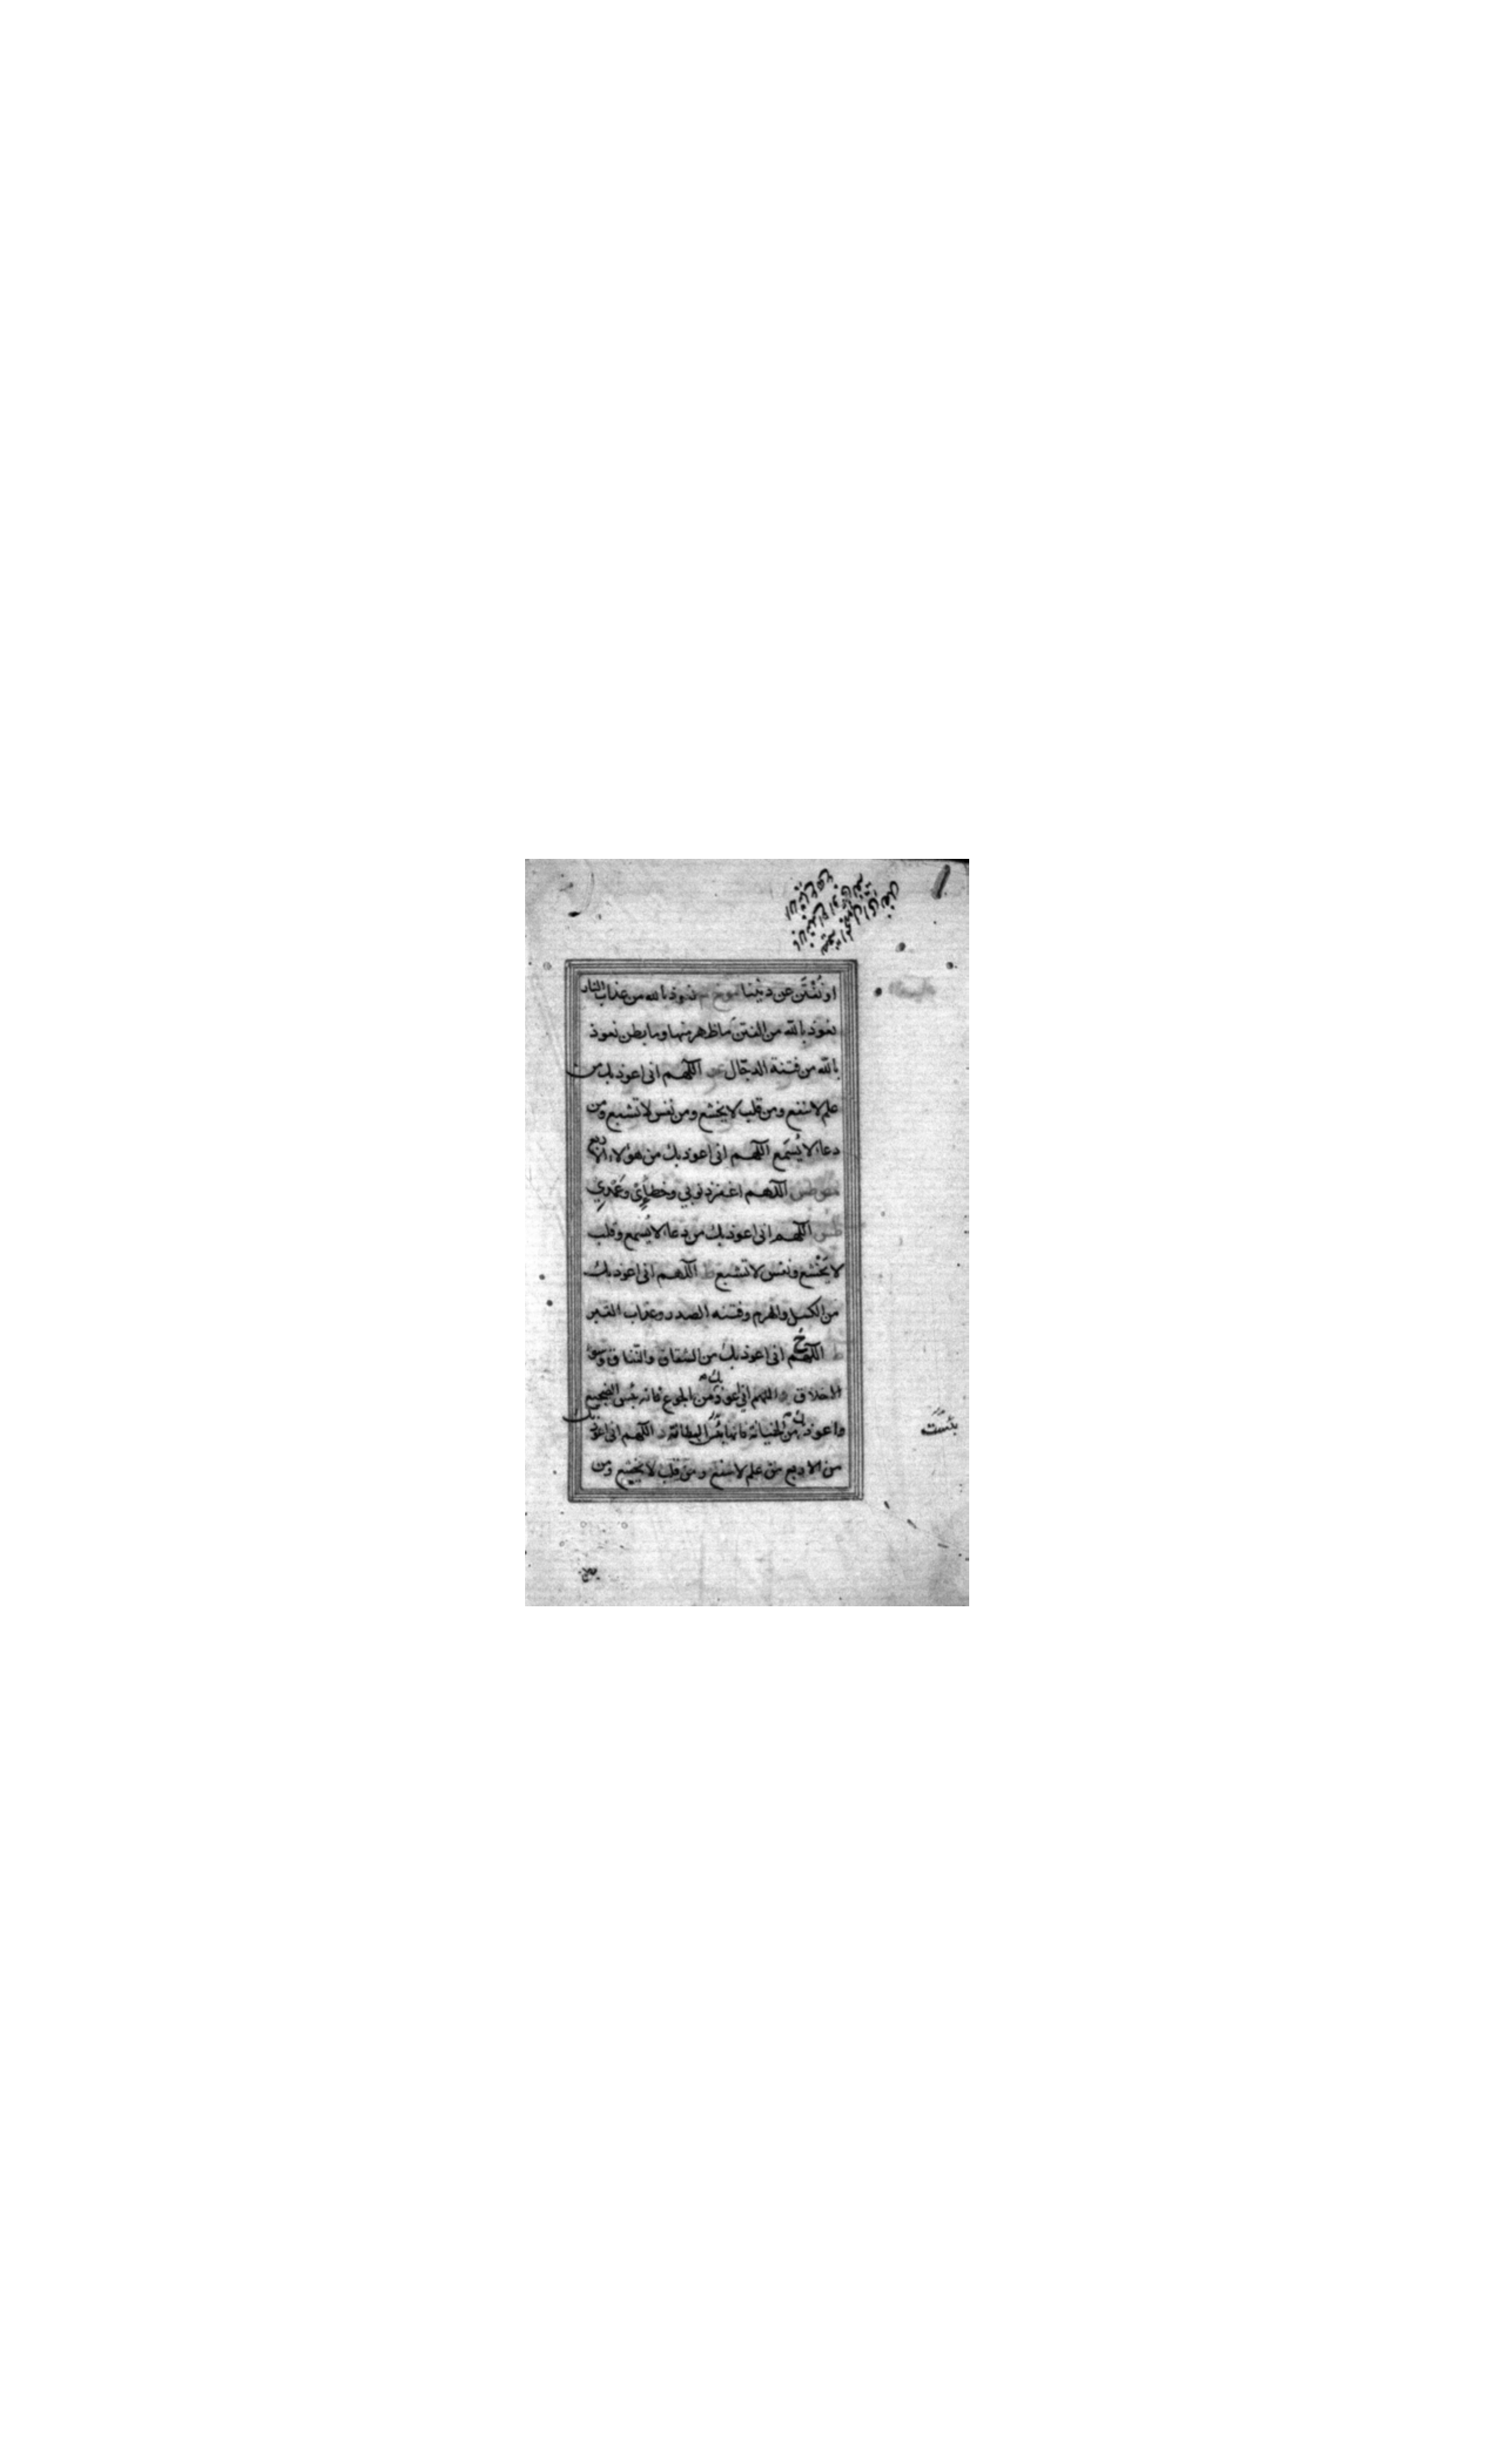 او نفتن عن ديننا خ م نعوذ بالله من عذاب النار
نعوذ بالله من الفتن ما ظهر منها وما بطن نعوذ
بالله من فتنة الدجال اللهم انى اعوذ بك من
علم لا ينفع ومن قلب لا يخشع ومن نفس لا تشبع ومن
دعاء لا يُسمَع اللهم انى اعوذ بك من هؤلاء الاربع
اللهم اغفر ذنوبي وخطإي وعَمْدِي
اللهم انى اعوذ بك من دعاء لا يُسمع وقلب
لا يَخْشع ونفس لا تشبع ط اللهم انى اعوذ بك
من الكسل والهرم وفتنه الصدر وعذاب القبر
اللهم انى اعوذ بك من الشقاق والنفاق وسوء
الاخلاق د اللهم اني اعوذ بك من الجوع فانه بئس الضجيع
واعوذ بك من الخيانة فانها بئس البطانة د اللهم انى اعوذ بك
من الاربع من علم لا ينفع ومن قلب لا يخشع ومن
بئست